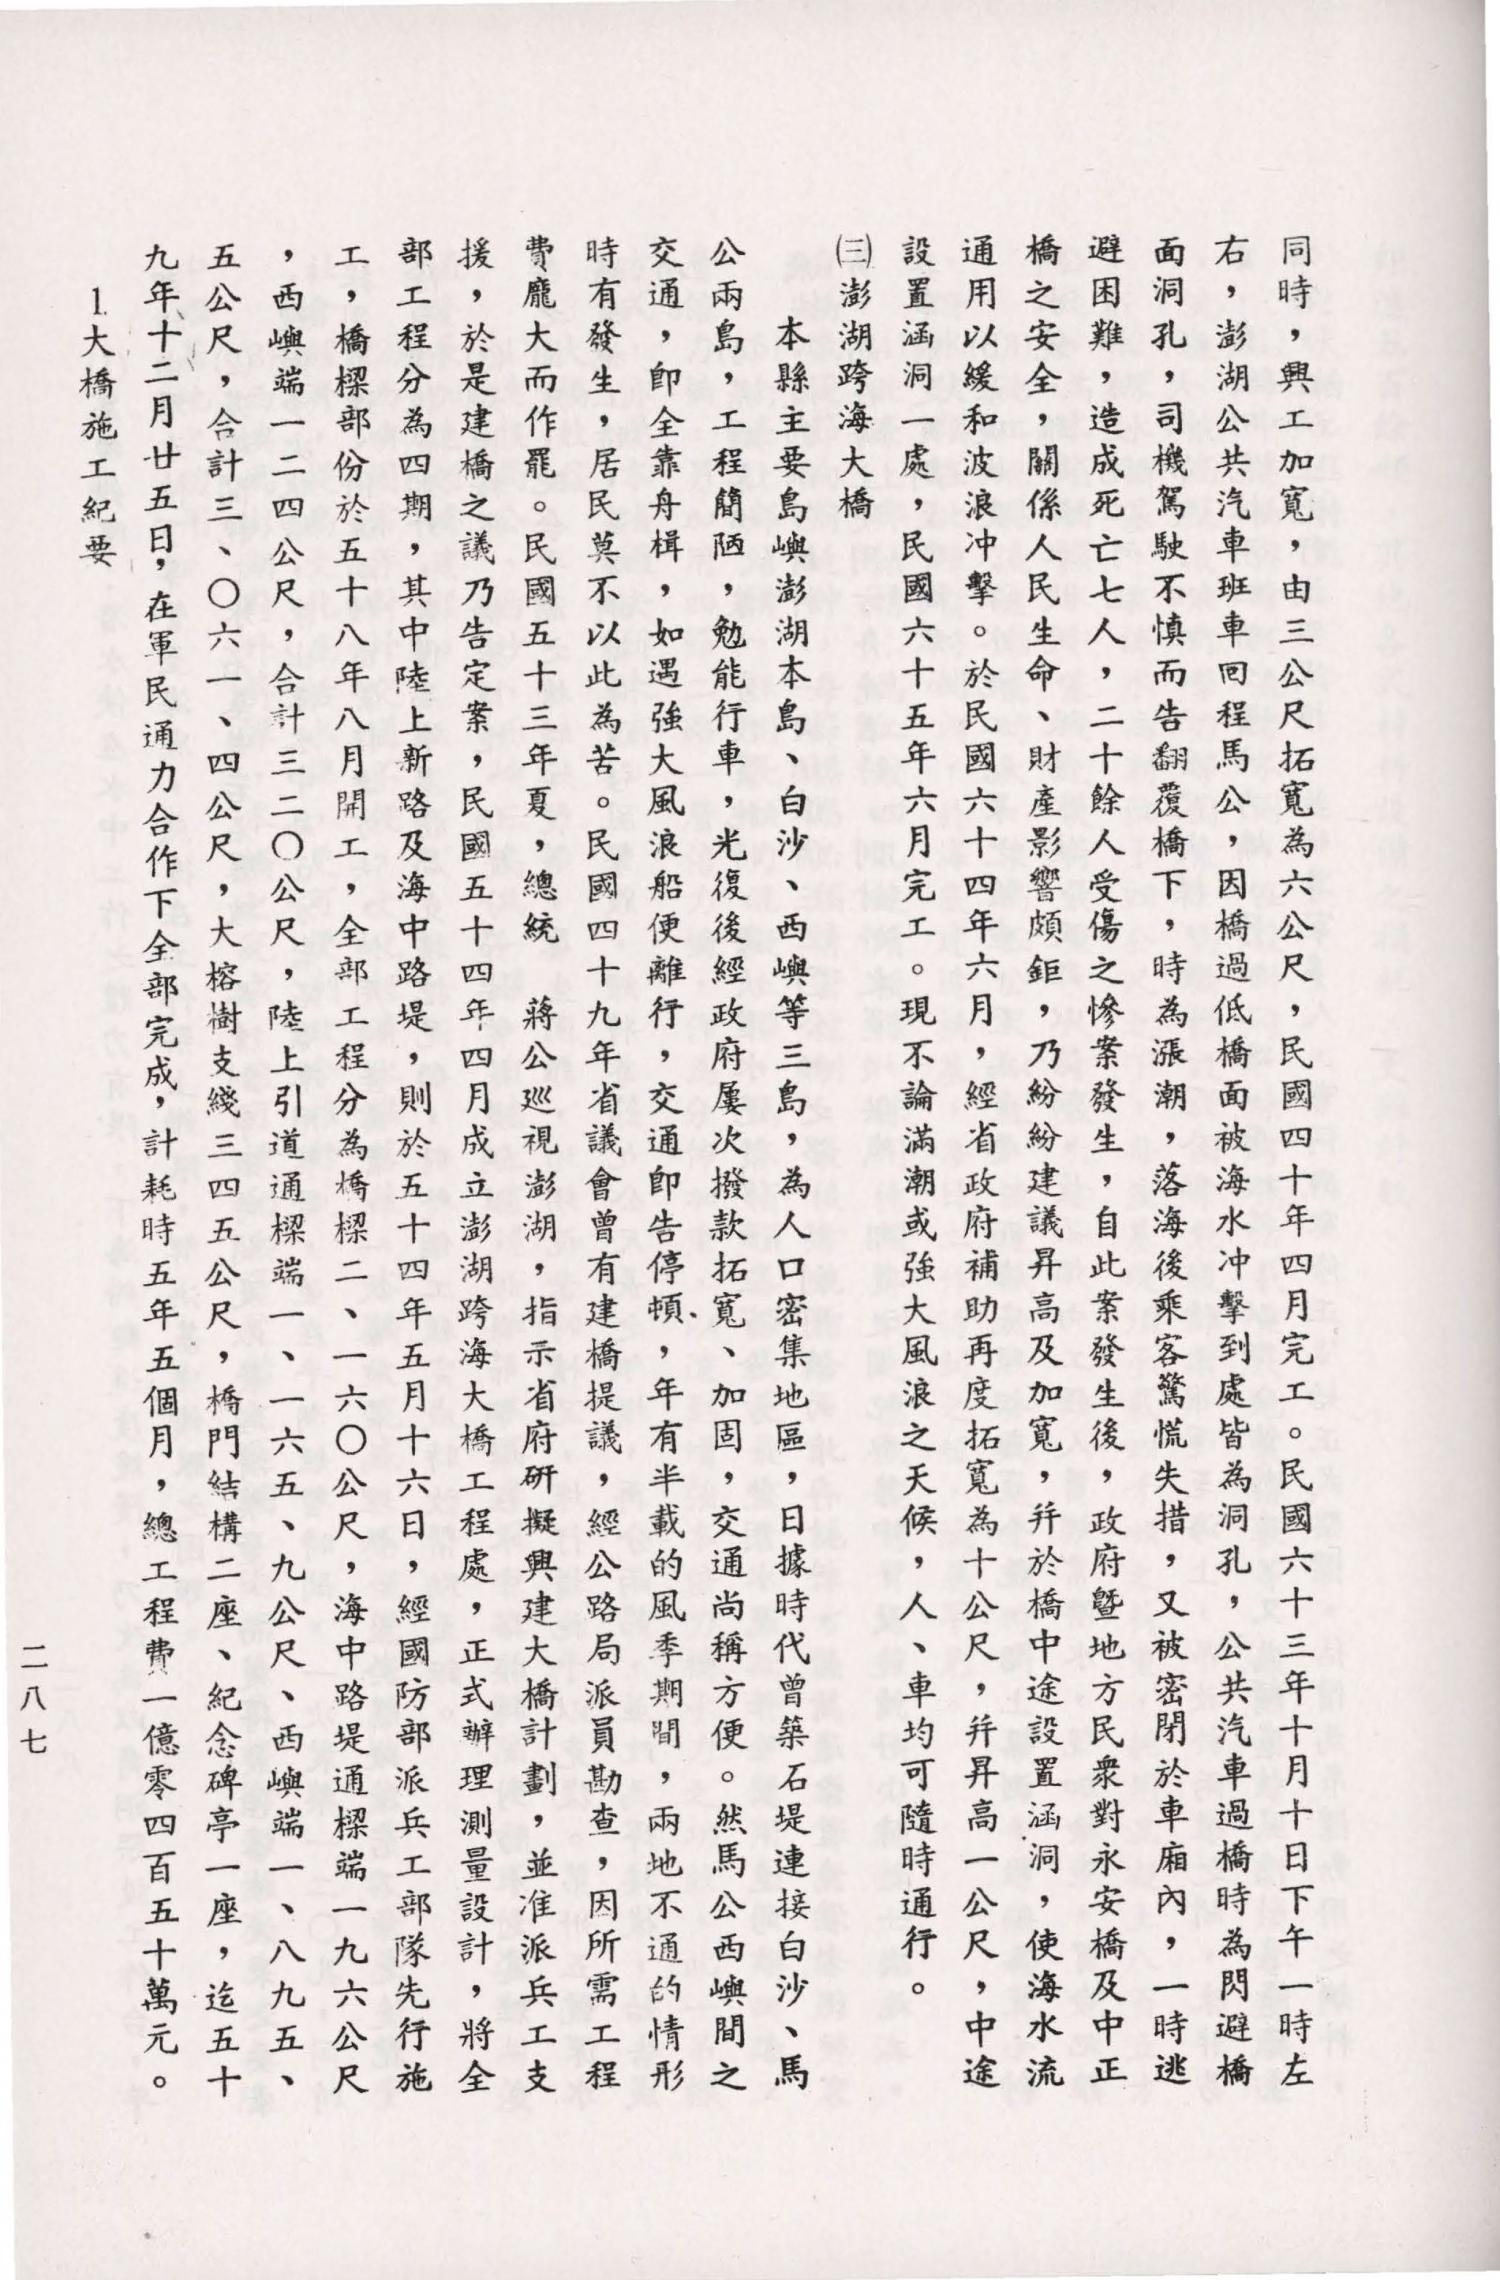 同時，興工加寬，由三公尺拓寬為六公尺，民國四十年四月完工。民國六十三年十月十日下午一時左
右，澎湖公共汽車班車回程馬公，因橋過低橋面被海水冲擊到處皆為洞孔，公共汽車過橋時為閃避橋
面洞孔，司機駕駛不慎而告翻覆橋下，時為漲潮，落海後乘客驚慌失措，又被密閉於車廂內，一時逃
避困難，造成死亡七人，二十餘人受傷之慘案發生，自此案發生後，政府暨地方民衆對永安橋及中正
橋之安全，關係人民生命、財產影響頗鉅，乃紛紛建議昇高及加寬，幷於橋中途設置涵洞，使海水流
通用以緩和波浪冲擊。於民國六十四年六月，經省政府補助再度拓寬為十公尺，幷昇高一公尺，中途
設置涵洞一處，民國六十五年六月完工。現不論滿潮或強大風浪之天候，人、車均可隨時通行。
㈢澎湖跨海大橋
本縣主要島嶼澎湖本島、白沙、西嶼等三島，為人口密集地區，日據時代曾築石堤連接白沙、馬
公兩島，工程簡陋，勉能行車，光復後經政府屢次撥款拓寬、加固，交通尚稱方便。然馬公西嶼間之
交通，卽全靠舟楫，如遇強大風浪船便離行，交通卽告停頓，年有半載的風季期間，兩地不通的情形
時有發生，居民莫不以此為苦。民國四十九年省議會曾有建橋提議，經公路局派員勘查，因所需工程
費龐大而作罷。民國五十三年夏，總統　蔣公巡視澎湖，指示省府研擬興建大橋計劃，並准派兵工支
援，於是建橋之議乃告定案，民國五十四年四月成立澎湖跨海大橋工程處，正式辦理測量設計，將全
部工程分為四期，其中陸上新路及海中路堤，則於五十四年五月十六日，經國防部派兵工部隊先行施
工，橋樑部份於五十八年八月開工，全部工程分為橋樑二、一六〇公尺，海中路堤通樑端一九六公尺
，西嶼端一二四公尺，合計三二〇公尺，陸上引道通樑端一、一六五、九公尺、西嶼端一、八九五、
五公尺，合計三、〇六一、四公尺，大榕樹支綫三四五公尺，橋門結構二座、紀念碑亭一座，迄五十
九年十二月廿五日，在軍民通力合作下全部完成，計耗時五年五個月，總工程費一億零四百五十萬元。
1.大橋施工紀要
二八七